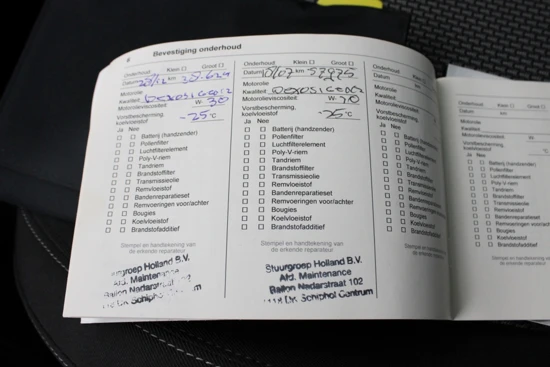 8 Bevestiging onderhoud
Onderhoud: Klein Groot
Datum km
Motorolie:
Kwaliteit
Motorolieviscositeit: W- 30
Vorstbescherming,
koelvloeistof -25°C
Ja Nee
Batterij (handzender)
Pollenfilter
Luchtfilterelement
Poly-V-riem
Tandriem
Brandstoffilter
Transmissieolie
Remvloeistof
Bandenreparatieset
Remvoeringen voor/achter
Bougies
Koelvloeistof
Brandstofadditief
Stempel en handtekening van
de erkende reparateur
Stuurgroep Holland B.V.
Afd. Maintenance
Schiphol
Onderhoud: Klein Groot
Datum km 57975
Motorolie:
Kwaliteit
Motorolieviscositeit: W-
Vorstbescherming,
koelvloeistof °C
Ja Nee
Batterij (handzender)
Pollenfilter
Luchtfilterelement
Poly-V-riem
Tandriem
Brandstoffilter
Transmissieolie
Remvloeistof
Bandenreparatieset
Remvoeringen voor/achter
Bougies
Koelvloeistof
Brandstofadditief
Stempel en handtekening van
de erkende reparateur
Stuurgroep Holland B.V.
Afd. Maintenance
Nederstraat 102
Schiphol Centrum
Onderhoud: Klein Groot
Datum km
Motorolie:
Kwaliteit
Motorolieviscositeit:
Vorstbescherming,
koelvloeistof °C
Ja Nee
Batterij (handzender)
Pollenfilter
Luchtfilterelement
Poly-V-riem
Tandriem
Brandstoffilter
Transmissieolie
Remvloeistof
Bandenreparatieset
Remvoeringen voor/achter
Bougies
Koelvloeistof
Brandstofadditief
Stempel en handtekening van
de erkende reparateur
Onderhoud: Klein Groot
Datum km
Motorolie:
Kwaliteit
Motorolieviscositeit:
Vorstbescherming,
koelvloeistof
Ja Nee
Batterij (handzender)
Pollenfilter
Luchtfilterelement
Poly-V-riem
Tandriem
Brandstoffilter
Transmissieolie
Remvloeistof
Bandenreparatieset
Remvoeringen voor/achter
Bougies
Koelvloeistof
Brandstofadditief
Stempel en handtekening van
de erkende reparateur